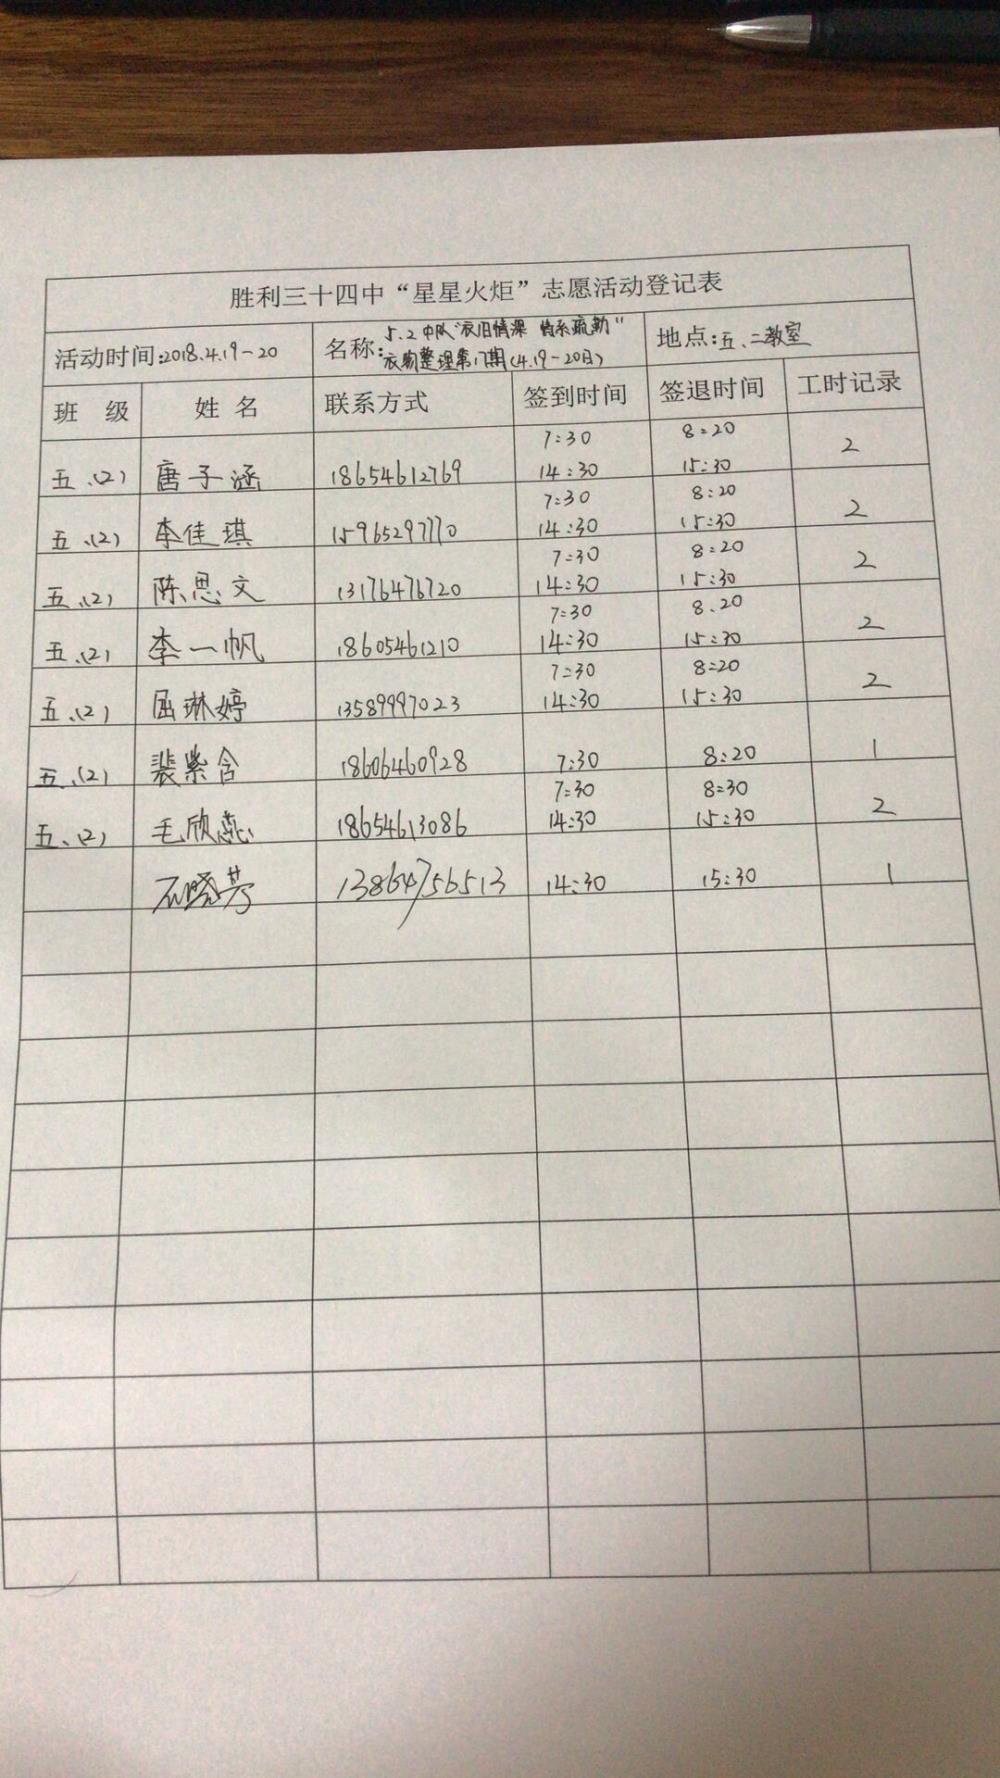 胜利三十四中“星星火炬”志愿活动登记表
活动时间:2018.4.19-20 名称: 5.2中队“衣旧情深 情系疏勒” 地点:五、二教室
衣物整理第17期(4.19-20日)
班 级 姓 名 联系方式 签到时间 签退时间 工时记录
7:30 8:20
五、(2) 唐子涵 18654612769 14:30 15:30 2
7:30 8:20
五、(2) 李佳琪 15965297710 14:30 15:30 2
7:30 8:20
五、(2) 陈思文 13176476720 14:30 15:30 2
7:30 8.20
五、(2) 李一帆 18605461210 14:30 15:30 2
7:30 8:20
五、(2) 屈琳婷 13589997023 14:30 15:30 2
五、(2) 裴紫含 18606460928 7:30 8:20 1
7:30 8:30
五、(2) 毛欣蕊 18654613086 14:30 15:30 2
石晓芳 13864756513 14:30 15:30 1